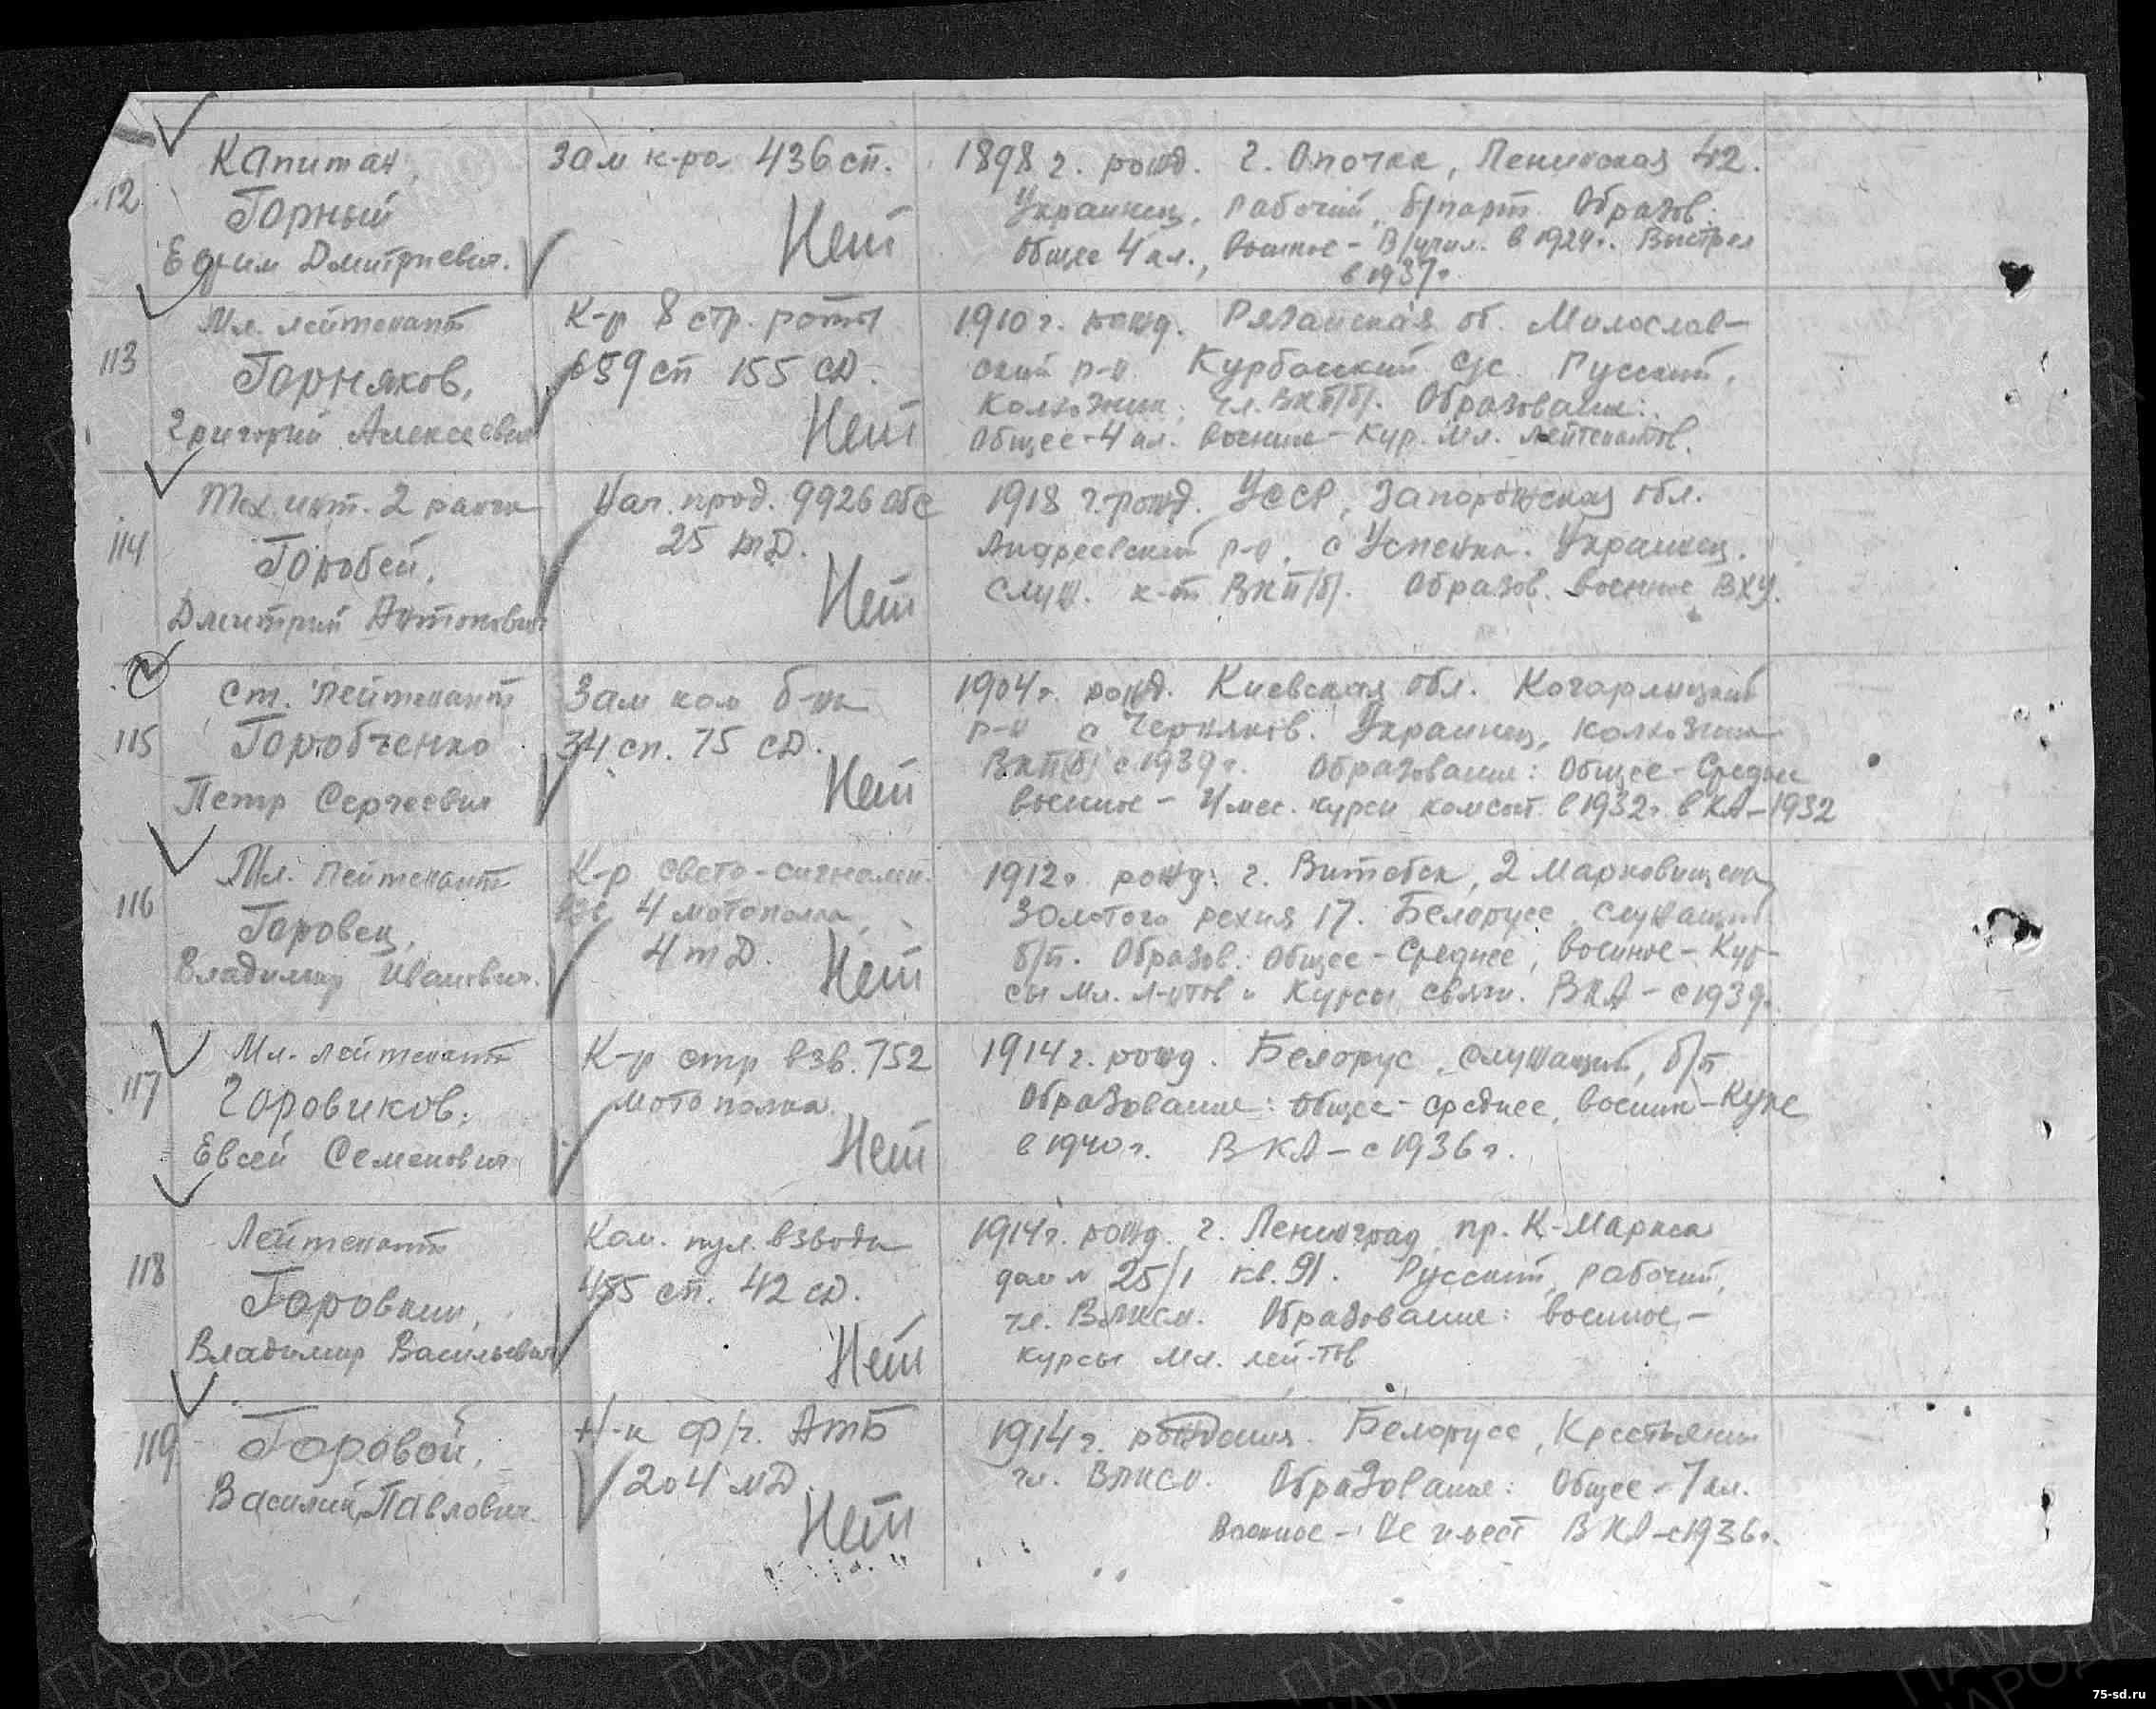 12
Капитан,
Горный
Ефим Дмитриевич.
Зам к-ра 436 сп.
Нет
1898 г. рожд. г. Опочка, Ленинская 42.
Украинец, рабочий, б/парт. Образов.
Общее 4 кл., военное - В/учил. в 1924г. Выстрел
в 1937г.
113
Мл. лейтенант
Горняков,
Григорий Алексеевич
К-р 8 стр. роты
659 сп 155 сД.
Нет
1910 г. рожд. Рязанская об. Милослав-
ский р-н Курбаский с/с. Русский,
колхозник, чл. ВКП/б/. Образование:
Общее - 4 кл. военное - кур. мл. лейтенантов.
114
Тех. инт. 2 ранга
Горобей,
Дмитрий Антонович
Нач. прод. 9926 обс
25 тД.
Нет
1918 г. рожд. УССР, Запорожская обл.
Андреевский р-н, с Успенка. Украинец.
служ. к-т ВКП/б/. Образов. военное ВХУ.
115
Ст. лейтенант
Горобченко
Петр Сергеевич
Зам ком б-на
34 сп. 75 сД.
Нет
1904 г. рожд. Киевская обл. Кагарлицкий
р-н с Черняхов. Украинец, колхозник
ВКП(б) с 1939 г. Образование: Общее - Среднее
военное - мес. курсы комсот. в 1932г в КА - 1932
116
Мл. лейтенант
Горовец,
Владимир Иванович.
К-р свето-сигнальн.
взв. 4 мотополка,
4 тД.
Нет
1912г рожд: г. Витебск, 2 Марковщена,
Золотого 17. Белорусс, служащий
б/п. Образов: Общее - Среднее, военное - Кур-
сы мл. л-нтов и Курсы связи. В КА - с 1939.
117
Мл. лейтенант
Горовиков,
Евсей Семенович
К-р стр взв. 752
мото полка.
Нет
1914 г. рожд. Белорус, служащий, б/п
Образование: общее - среднее, военн - Курс
в 1940 г. В КА - с 1936 г.
118
Лейтенант
Горовкин,
Владимир Васильевич
Ком. пул. взвода
455 сп. 42 сД.
Нет
1914 г. рожд. г. Ленинград, пр. К-Маркса
дом 25/1 кв. 91. Русский, рабочий,
чл. ВЛКСМ. Образование: военное -
курсы мл. лей-тов
119
Горовой,
Василий Павлович.
Н-к ф/ч. АТБ
204 мД.
Нет
1914 г. рождения. Белорусс, Крестьянин
чл. ВЛКСМ. Образование: Общее - 7 кл.
Военное - Не имеет В КА - с 1936 г.
75-sd.ru